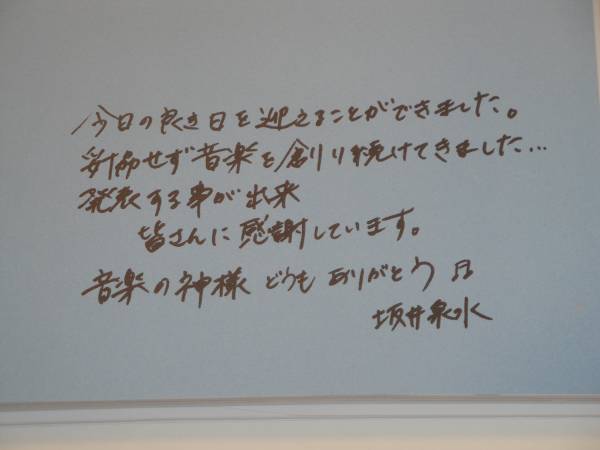 今日の良き日を迎えることができました。
妥協せず音楽を創り続けてきました…
発表する事が出来
皆さんに感謝しています。
音楽の神様 どうも ありがとう♫
坂井泉水